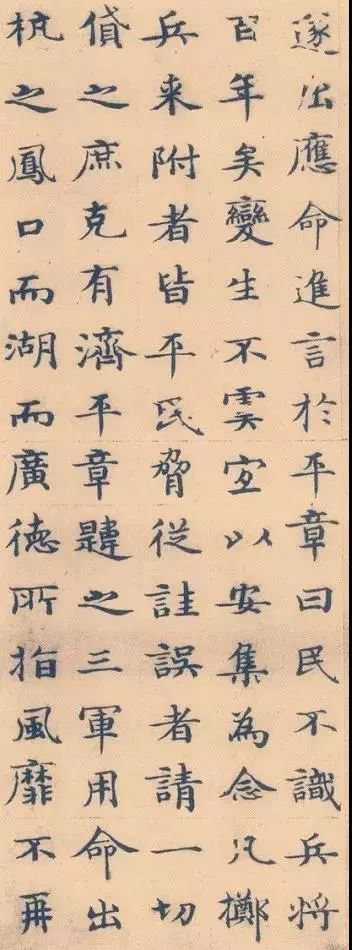 遂出應命進言於平章曰民不識兵將
百年矣變生不虞宜以安集為念凡擲
兵来附者皆平民脅從詿誤者請一切
貸之庶克有濟平章韙之三軍用命出
杭之鳳口而湖而廣德所指風靡不再